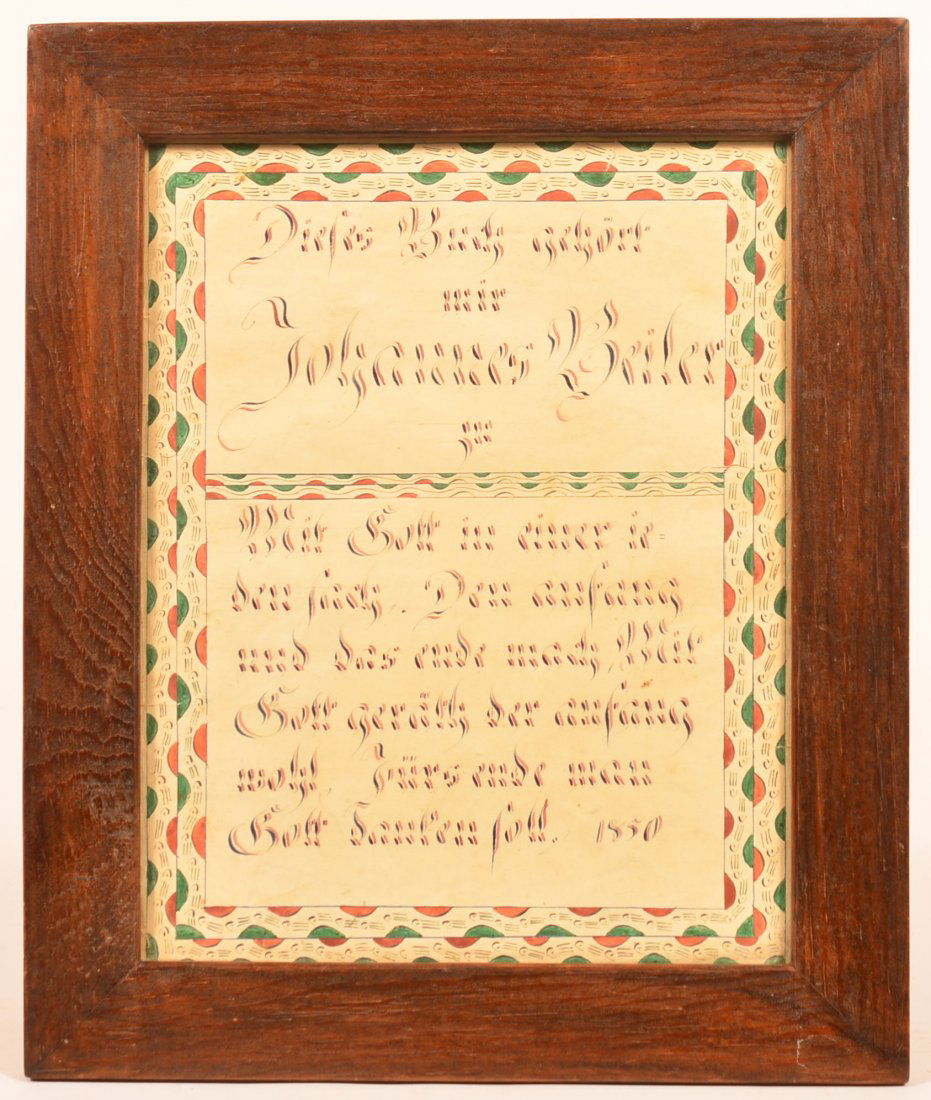 Dieses Buch gehört
mir
Johannes Beiler
zu
Mit Gott in einer ie=
den sach, Den anfang
und das ende mach, Mit
Gott geräth der anfang
wohl, Fürs ende man
Gott danken soll. 1850